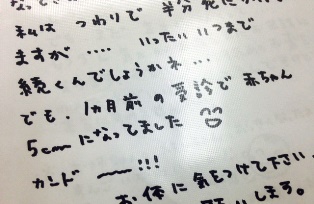 私は つわりで 半分 死に
ますが‥‥ いったい いつまで
続くんでしょうかネ…
でも、1ヵ月前の受診で 赤ちゃん
5cmになってました
カンドー〜!!!
お体に気をつけて下さい。
します。